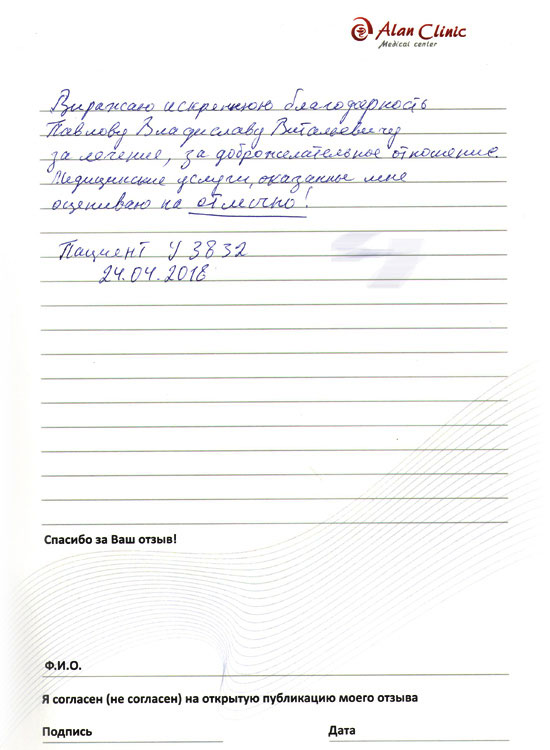 Alan Clinic
Medical center
Выражаю искреннюю благодарность
Павлову Владиславу Витальевичу
за лечение, за доброжелательное отношение.
Медицинские услуги, оказанные мне
оцениваю на отлично!
Пациент У 3832
24.04.2018
Спасибо за Ваш отзыв!
Ф.И.О.
Я согласен (не согласен) на открытую публикацию моего отзыва
Подпись Дата